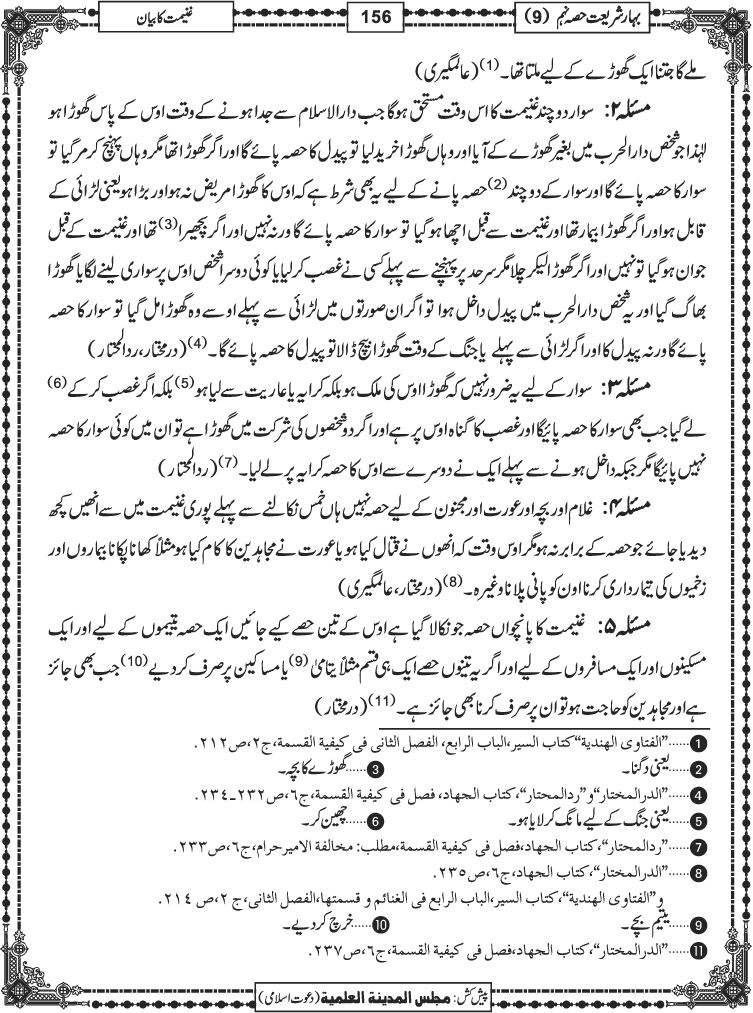 بہار شریعت حصہ نہم (9)
156
غنیمت کا بیان
ملے گا جتنا ایک گھوڑے کے لیے ملتا تھا۔(1) (عالمگیری)
مسئلہ ۲: سوار دو چند غنیمت کا اس وقت مستحق ہوگا جب دارالاسلام سے جدا ہونے کے وقت اوس کے پاس گھوڑا ہو
لہٰذا جو شخص دارالحرب میں بغیر گھوڑے کے آیا اور وہاں گھوڑا خرید لیا تو پیدل کا حصہ پائے گا اور اگر گھوڑا تھا مگر وہاں پہنچ کر مر گیا تو
سوار کا حصہ پائے گا اور سوار کے دو چند(2) حصہ پانے کے لیے یہ بھی شرط ہے کہ اوس کا گھوڑا مریض نہ ہو اور بڑا ہو یعنی لڑائی کے
قابل ہو اور اگر گھوڑا بیمار تھا اور غنیمت سے قبل اچھا ہوگیا تو سوار کا حصہ پائے گا ورنہ نہیں اور اگر بچھیرا(3) تھا اور غنیمت کے قبل
جوان ہوگیا تو نہیں اور اگر گھوڑا لیکر چلا مگر سرحد پر پہنچنے سے پہلے کسی نے غصب کر لیا یا کوئی دوسرا شخص اوس پر سواری لینے لگا یا گھوڑا
بھاگ گیا اور یہ شخص دارالحرب میں پیدل داخل ہوا تو اگر ان صورتوں میں لڑائی سے پہلے اوسے وہ گھوڑا مل گیا تو سوار کا حصہ
پائے گا ورنہ پیدل کا اور اگر لڑائی سے پہلے یا جنگ کے وقت گھوڑا بیچ ڈالا تو پیدل کا حصہ پائے گا۔(4) (درمختار، ردالمحتار)
مسئلہ ۳: سوار کے لیے یہ ضرور نہیں کہ گھوڑا اوس کی ملک ہو بلکہ کرایہ یا عاریت سے لیا ہو(5) بلکہ اگر غصب کر کے(6)
لے گیا جب بھی سوار کا حصہ پائیگا اور غصب کا گناہ اوس پر ہے اور اگر دو شخصوں کی شرکت میں گھوڑا ہے تو ان میں کوئی سوار کا حصہ
نہیں پائیگا مگر جبکہ داخل ہونے سے پہلے ایک نے دوسرے سے اوس کا حصہ کرایہ پر لے لیا۔(7) (ردالمحتار)
مسئلہ ۴: غلام اور بچہ اور عورت اور مجنون کے لیے حصہ نہیں ہاں خمس نکالنے سے پہلے پوری غنیمت میں سے انھیں کچھ
دیدیا جائے جو حصہ کے برابر نہ ہو مگر اوس وقت کہ انھوں نے قتال کیا ہو یا عورت نے مجاہدین کا کام کیا ہو مثلاً کھانا پکانا بیماروں اور
زخمیوں کی تیمارداری کرنا اون کو پانی پلانا وغیرہ۔(8) (درمختار، عالمگیری)
مسئلہ ۵: غنیمت کا پانچواں حصہ جو نکالا گیا ہے اوس کے تین حصے کیے جائیں ایک حصہ یتیموں کے لیے اور ایک
مسکینوں اور ایک مسافروں کے لیے اور اگر یہ تینوں حصے ایک ہی قسم مثلاً یتامیٰ(9) یا مساکین پر صرف کر دیے(10) جب بھی جائز
ہے اور مجاہدین کو حاجت ہو تو ان پر صرف کرنا بھی جائز ہے۔(11) (درمختار)
1……"الفتاوى الهندية"كتاب السير،الباب الرابع، الفصل الثانى فى كيفية القسمة،ج٢،ص٢١٢.
2……یعنی دگنا۔ 3……گھوڑے کا بچہ۔
4……"الدرالمختار"و"ردالمحتار"،كتاب الجهاد، فصل فى كيفية القسمة،ج٦،ص٢٣٢-٢٣٤.
5……یعنی جنگ کے لیے مانگ کر لایا ہو۔ 6……چھین کر۔
7……"ردالمحتار"،كتاب الجهاد،فصل فى كيفية القسمة،مطلب: مخالفة الاميرحرام،ج٦،ص٢٣٣.
8……"الدرالمختار"،كتاب الجهاد،ج٦،ص٢٣٥.
و"الفتاوى الهندية"،كتاب السير،الباب الرابع فى الغنائم و قسمتها،الفصل الثانى،ج ٢،ص ٢١٤.
9……یتیم بچے۔ 10……خرچ کر دیے۔
11……"الدرالمختار"،كتاب الجهاد،فصل فى كيفية القسمة،ج٦،ص٢٣٧.
پیش کش: مجلس المدینة العلمیة (دعوت اسلامی)